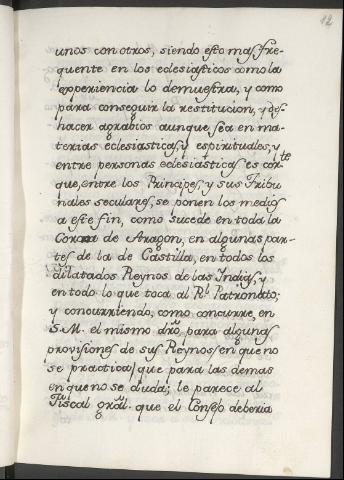 12
unos con otros, siendo esto mas fre-
quente en los eclesiasticos como la
experiencia lo demuestra, y como
para conseguir la restitucion, y des
hacer agrabios aunque sea en ma-
terias eclesiasticas, y espirituales, y
entre personas eclesiasticas es corte
que, entre los Principes, y sus Tribu
nales seculares, se ponen los medios
a este fin, como sucede en toda la
Corona de Aragon, en algunas par-
tes de la de Castilla, en todos los
dilatados Reynos de las Indias, y
en todo lo que toca al Rl. Patronato;
y concurriendo, como concurre, en
S.M. el mismo dro, para algunas
provisiones de sus Reynos en que no
se practica/ que para las demas
en que no se duda; le parece al
Fiscal gral. que el Consejo deberia